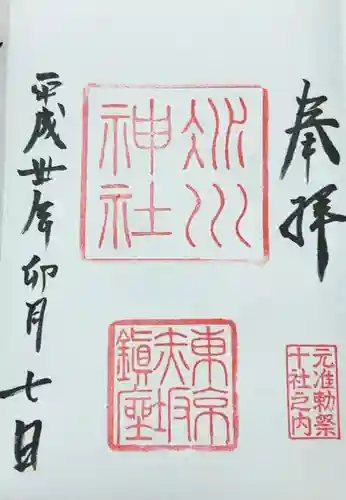 奉拝
氷川
神社
東京
赤坂
鎮座
元准勅祭
十社之内
平成卅年卯月七日